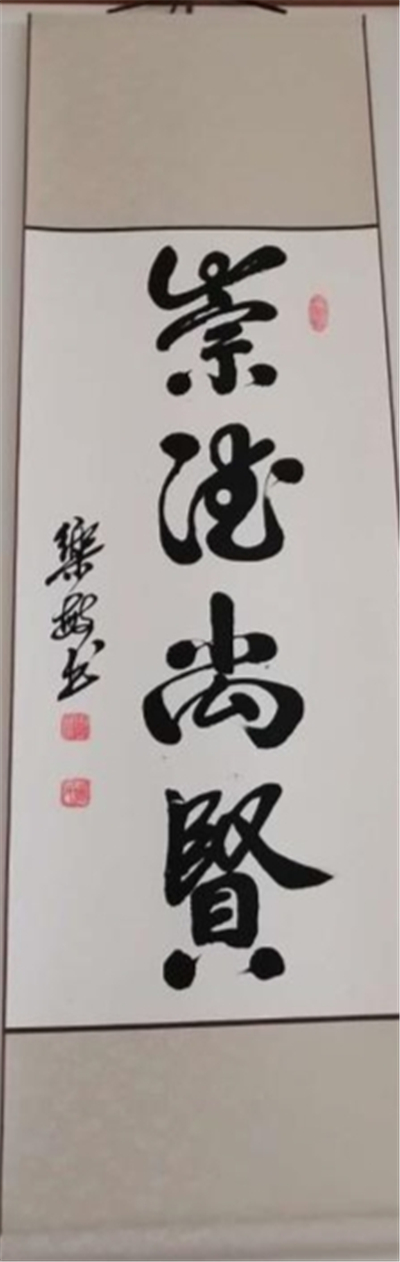 崇德尚賢
樂敏书